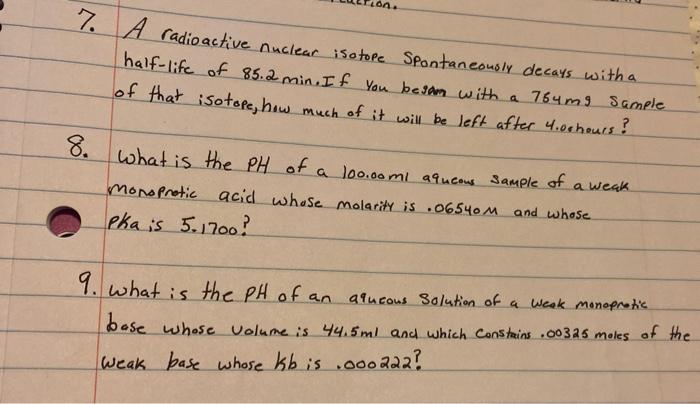 7. A radioactive nuclear isotope Spontaneously decays with a
half-life of 85.2 min. If You began with a 764mg Sample
of that isotope, how much of it will be left after 4.00hours?
8. what is the PH of a 100.00ml aqueous sample of a weak
monoprotic acid whose molarity is .06540M and whose
Pka is 5.1700?
9. what is the PH of an aqueous Solution of a weak monoprotic
base whose volume is 44.5ml and which Constains .00325 moles of the
weak base whose kb is .000222?